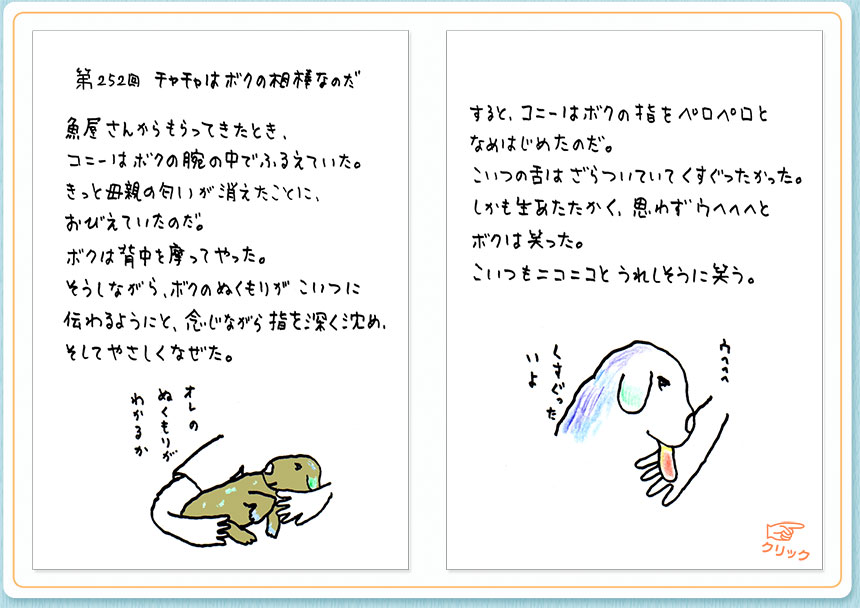 第252回 チャチャはボクの相棒なのだ
魚屋さんからもらってきたとき、
コニーはボクの腕の中でふるえていた。
きっと母親の匂いが消えたことに、
おびえていたのだ。
ボクは背中を摩ってやった。
そうしながら、ボクのぬくもりが こいつに
伝わるようにと、念じながら指を深く沈め、
そしてやさしくなぜた。
オレの
ぬくもりが
わかるか
すると、コニーはボクの指をペロペロと
なめはじめたのだ。
こいつの舌はざらついていてくすぐったかった。
しかも生あたたかく、思わずウヘヘヘと
ボクは笑った。
こいつもニコニコとうれしそうに笑う。
ウヘヘヘ
くすぐった
いよ
クリック